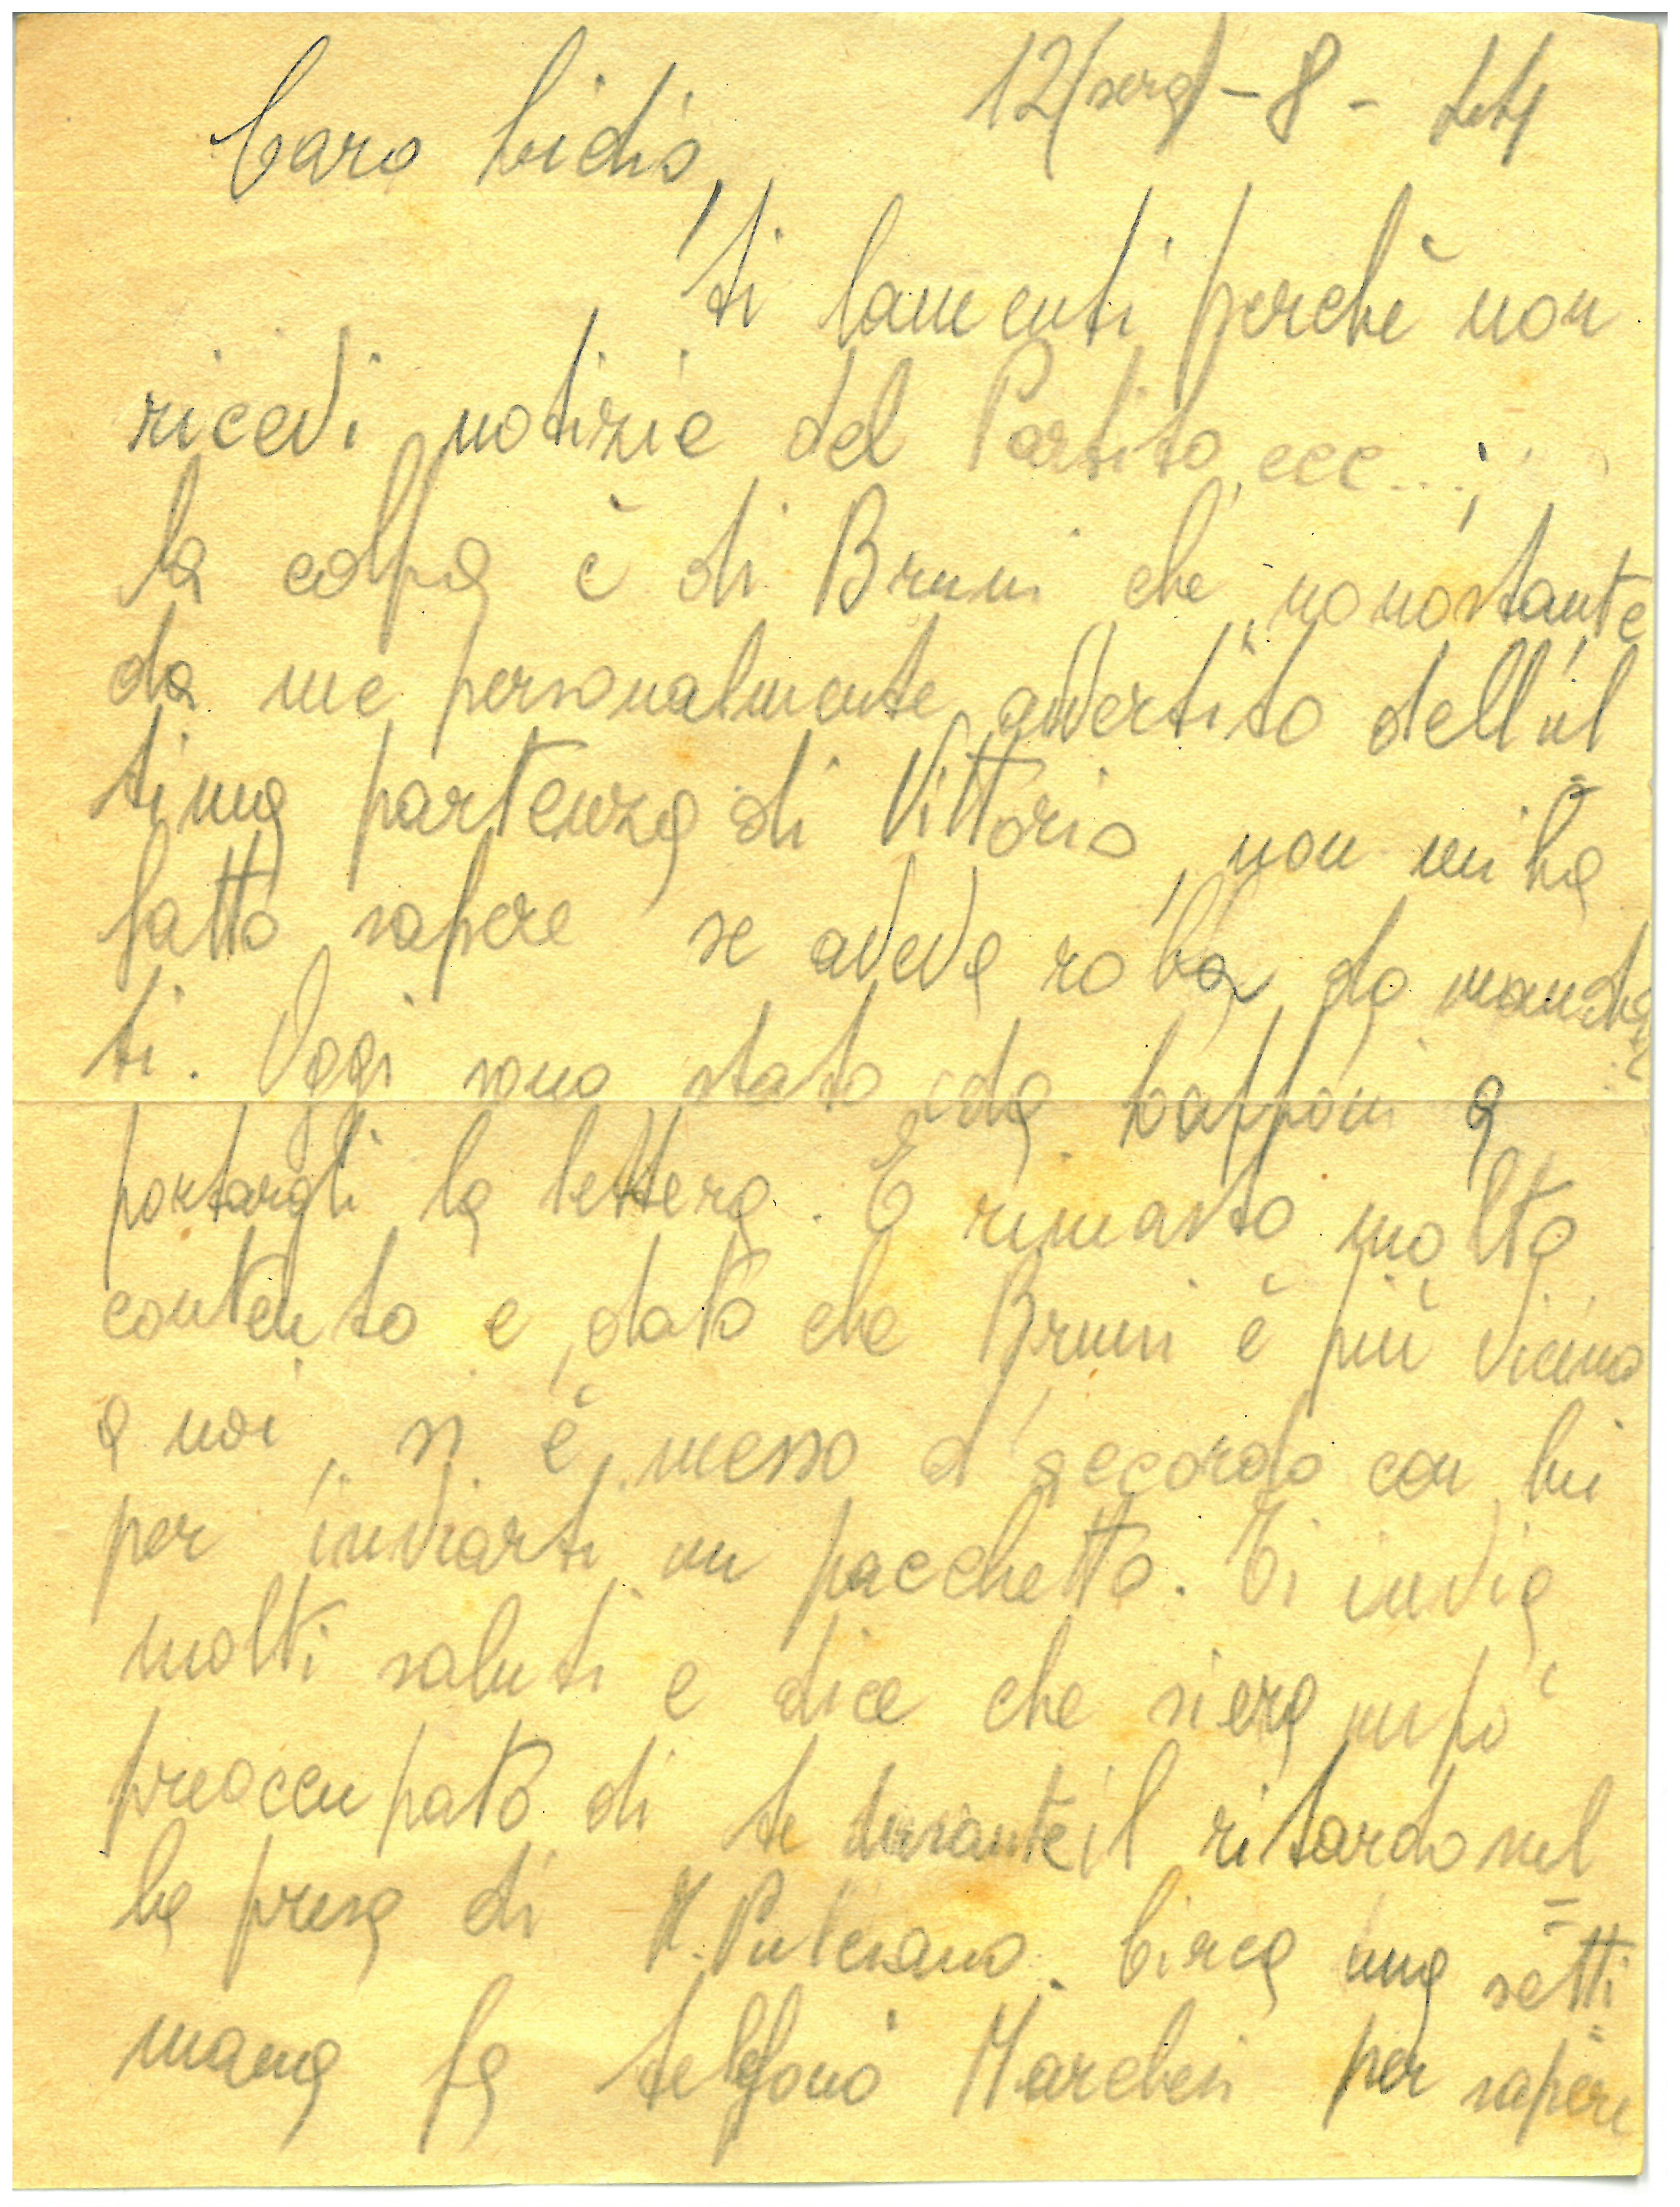 12(sera) - 8 - 44
Caro Lidio,
ti lamenti perchè non
ricevi notizie del Partito ecc...;
la colpa è di Bruni che, nonostante
da me personalmente avvertito dell'ul
tima partenza di Vittorio, non mi ha
fatto sapere se aveva roba da mandar
ti. Oggi sono stato da Zapponi a
portargli la lettera. E rimasto molto
contento e, dato che Bruni è più vicino
a noi, si è messo d'accordo con lui
per inviarti un pacchetto. Ti invia
molti saluti e dice che si era un pò
preoccupato di te durante il ritardo nel
la presa di M. Pulciano. Circa una setti
mana fa telefonò Marchesi per sapere